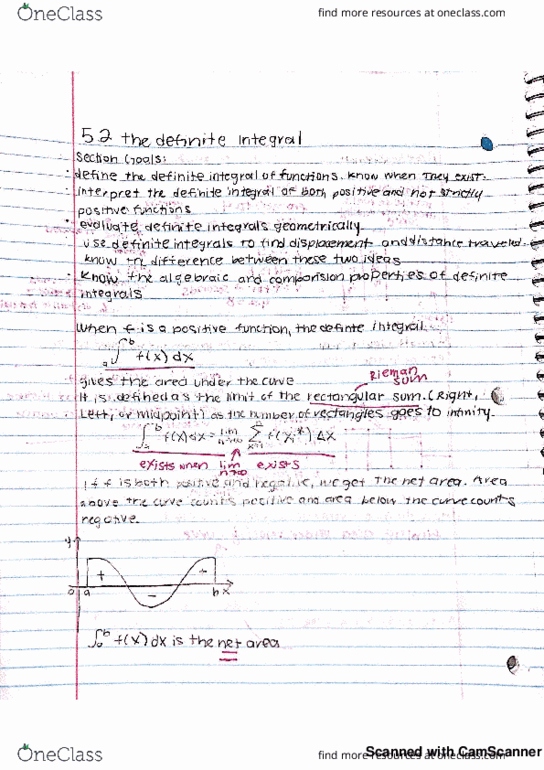 OneClass
find more resources at oneclass.com
5.2 the definite integral
Section Goals:
· define the definite integral of functions. know when they exist.
· interpret the definite integral of both positive and not strictly
positive functions
· evaluate definite integrals geometrically
· use definite integrals to find displacement and distance traveled.
know the difference between these two ideas
· know the algebraic and comparision properties of definite
integrals
when f is a positive function, the definte integral.
a∫b f(x) dx
gives the area under the curve
Rieman
sum
It is defined as the limit of the rectangular sum. (Right,
Left, or midpoint) as the number of rectangles goes to infinity.
∫ab f(x) dx = lim n→∞ Σ f(xi*) Δx
exists when lim n→∞ exists
If f is both positive and negative, we get the net area. Area
above the curve counts positive and area below the curve counts
negative.
y
+ +
−
0 a b x
∫ab f(x) dx is the net area
OneClass
find more resources at oneclass.com
Scanned with CamScanner